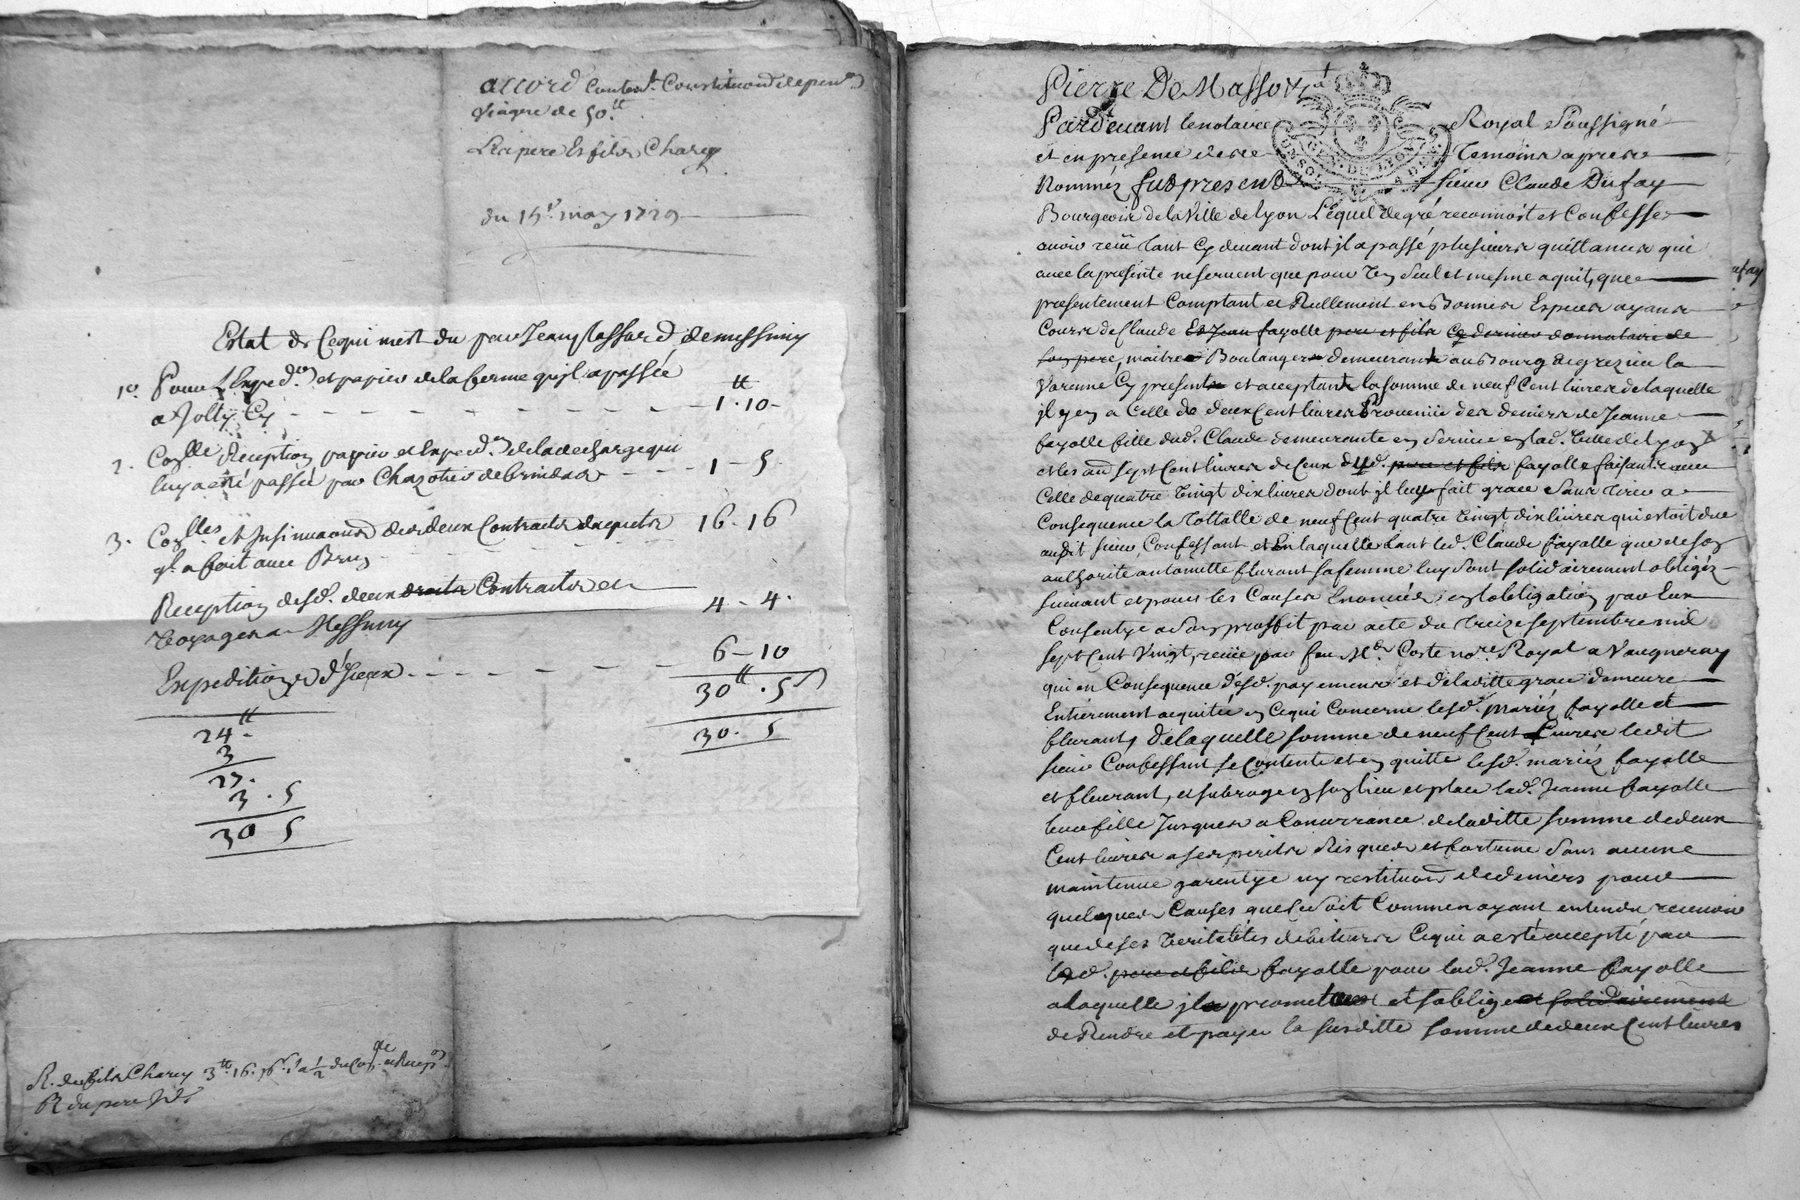 accord Conten.t Constitution de pen.on
viagere de 50.tt
Les pere Et fils Charey
du 15.e may 1729
Estat de Cequi mest du par Jean Passard de messimy
1.o Pour L'Exped.on et papier de la ferme qu'jl a passée
a Jolly Cy - - - - - - - - 1.tt 10 -
2. Con.lle Reception papier et Exped.on de la decharge qui
luy a eté passée par Chazottier de brindas - - - 1 - 5
3. Con.lles et Insinuaons des deux Contracts daquets 16 - 16
ql. a fait avec Brun
Reception desd. deux droits Contracts et 4 - 4.
voyages a Messimy
Expeditions d'jceux - - - - - 6 - 10
30.tt 5 s
30 - 5
24.tt
3
27.
3 . 5
30 5
R. du fils Charey 3.tt 16.
R du pere
Pierre De Masso
Pardevant le notaire Royal Soussigné
et en presence des Temoins apres
Nommés fut present sieur Claude Dufay
Bourgeois de la Ville de Lyon Lequel de gré reconnoit et Confesse
avoir reüe tant Cy devant dont jl a passé plusieurs quittances qui
avec la presente ne servent que pour un Seul et mesme aquit, que
presentement Comptant et Reellement en Bonnes Especes ayant
Cours de Claude Et Jean fayolle pere et fils Ce dernier donnataire de
son pere, maitre Boulanger demeurant au Bourg de grezieu la
Varenne Cy present et acceptant la somme de neuf Cent livres de laquelle
jl y en a Celle de deux Cent livres Provenüe des deniers de Jeanne
fayolle fille dud. Claude demeurante en service en lad. ville de Lyon
et les au.t sept Cent livres de Ceux dud. pere et fils fayolle faisant avec
Celle de quatre vingt dix livres dont jl luy fait grace Sans tirer a
Consequence la Tottalle de neuf Cent quatre vingt dix livres qui estoit due
audit sieur Confessant et En laquelle tant led. Claude fayolle que de son
authorité antoinette flurant sa femme luy sont solidairement obligéz
suivant et pour les Causes Enoncées en l'obligation par Eux
Consentye a son proffit par acte du Treize septembre mil
sept Cent Vingt, reçüe par feu M.e Coste no.re Royal a Vaugneray
qui en Consequence desd. payemens et de laditte grace demeure
Entierement aquitée en Cequi Concerne lesd. mariéz fayolle et
flurant, de laquelle somme de neuf Cent Livres ledit
sieur Confessant se Contente et en quitte lesd. mariéz fayolle
et fleurant, et subroge en son lieu et place lad. Jeanne fayolle
leur fille Jusques a Concurrance de laditte somme de deux
Cent livres a ses perils Risques et fortune Sans aucune
maintenue garentye ny restitution de deniers pour
quelques Causes que Ce Soit Comme n'ayant entendu recevoir
que de ses veritables debiteurs Cequi a esté accepté par
led. pere et fils fayolle pour lad. Jeanne fayolle
a laquelle jl promet et s'oblige et solidairement
de Rendre et payer la susditte somme de deux Cent livres